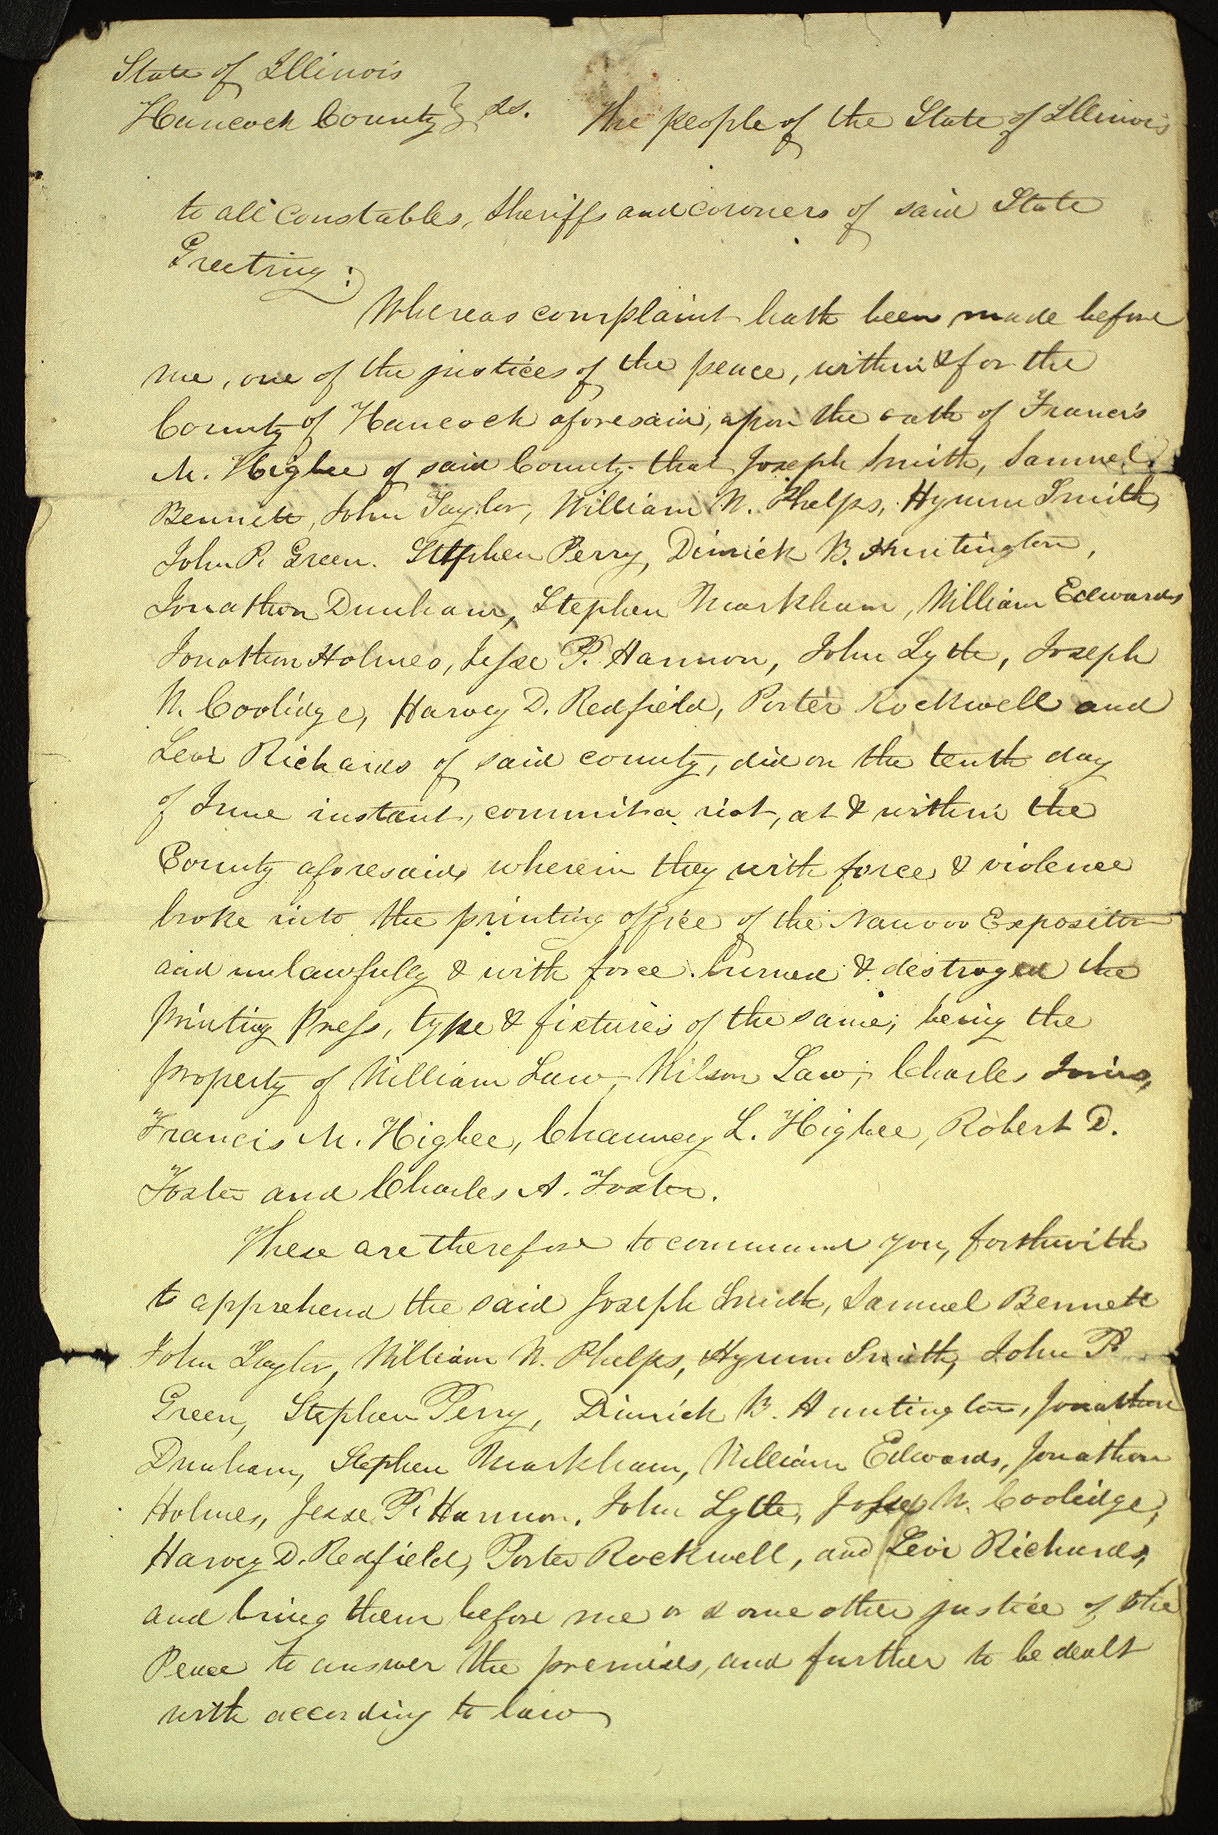 State of Illinois
Hancock County } ss. The people of the State of Illinois
to all constables, sheriffs and coroners of said State
Greeting:
Whereas complaint hath been made before
me, one of the justices of the peace, within & for the
County of Hancock aforesaid, upon the oath of Francis
M. Higbee of said County that Joseph Smith, Samuel
Bennett, John Taylor, William W. Phelps, Hyrum Smith,
John P. Green. Stephen Perry, Dimick B. Huntington,
Jonathon Dunham, Stephen Markham, William Edwards
Jonathon Holmes, Jesse P. Harmon, John Lytle, Joseph
W. Coolidge, Harvey D. Redfield, Porter Rockwell and
Levi Richards of said county, did on the tenth day
of June instant, commit a riot, at & within the
County aforesaid, wherein they with force & violence
broke into the printing office of the Nauvoo Expositor
and unlawfully & with force burned & destroyed the
printing press, type & fixtures of the same, being the
property of William Law, Wilson Law, Charles Ivins,
Francis M. Higbee, Chauncey L. Higbee, Robert D.
Foster and Charles A. Foster.
These are therefore to command you, forthwith
to apprehend the said Joseph Smith, Samuel Bennett
John Taylor, William W. Phelps, Hyrum Smith, John P.
Green, Stephen Perry, Dimick B. Huntington, Jonathon
Dunham, Stephen Markham, William Edwards, Jonathon
Holmes, Jesse P. Harmon, John Lytle, Joseph W. Coolidge,
Harvey D. Redfield, Porter Rockwell, and Levi Richards,
and bring them before me or some other justice of the
Peace to answer the premises, and further to be dealt
with according to law